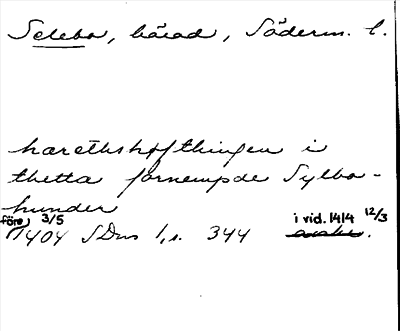 Selebo, härad, Söderm. l.
harethshøfthingen i
thetta førnempde Sylbo-
hunder
(före) 3/5 1404 SDns 1, s. 344 i vid. 1414 12/3.